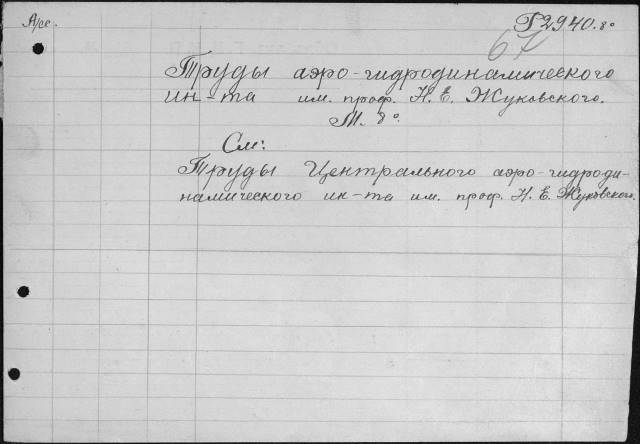 Г2940.8°
67
Труды аэро-гидродинамического
ин-та им. проф. Н. Е. Жуковского.
М. 8°.
См:
Труды Центрального аэро-гидроди-
намического ин-та им. проф. Н. Е. Жуковского.